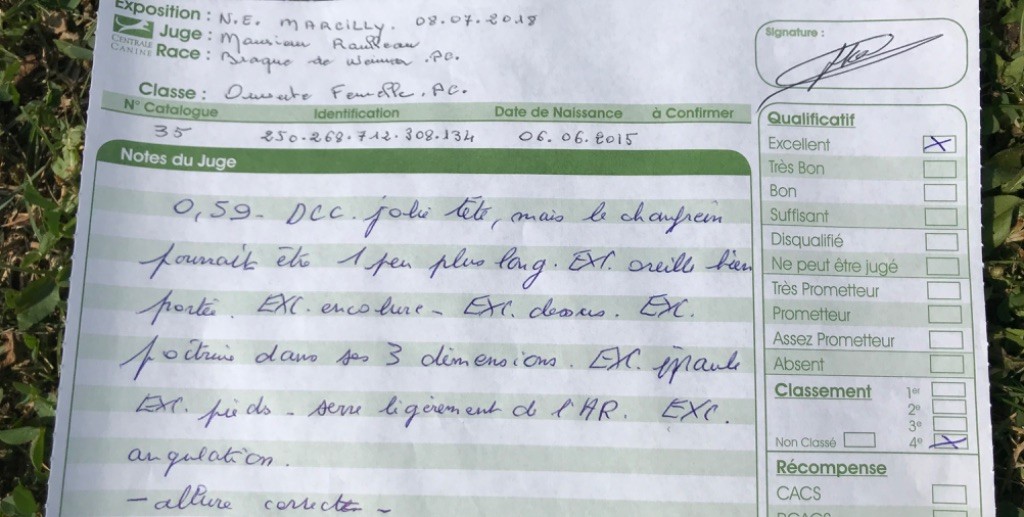 Exposition : N.E. MARCILLY. 08.07.2018
CENTRALE CANINE
Juge : Monsieur
Race : Braque de Weimar . PC.
Classe : Ouverte Femelle . PC.
N° Catalogue Identification Date de Naissance à Confirmer
35 250.268.712.308.134 06.06.2015
Notes du Juge
0,59 - DCC. jolie tête, mais le chanfrein
pourrait être 1 peu plus long. EXC. oreille bien
portée. EXC. encolure - EXC. dessus. EXC.
poitrine dans ses 3 dimensions. EXC. épaule
EXC. pieds - serre légèrement de l'AR. EXC.
angulation.
- allure correcte -
Signature :
Qualificatif
Excellent
Très Bon
Bon
Suffisant
Disqualifié
Ne peut être jugé
Très Prometteur
Prometteur
Assez Prometteur
Absent
Classement 1er
2e
3e
Non Classé 4e
Récompense
CACS